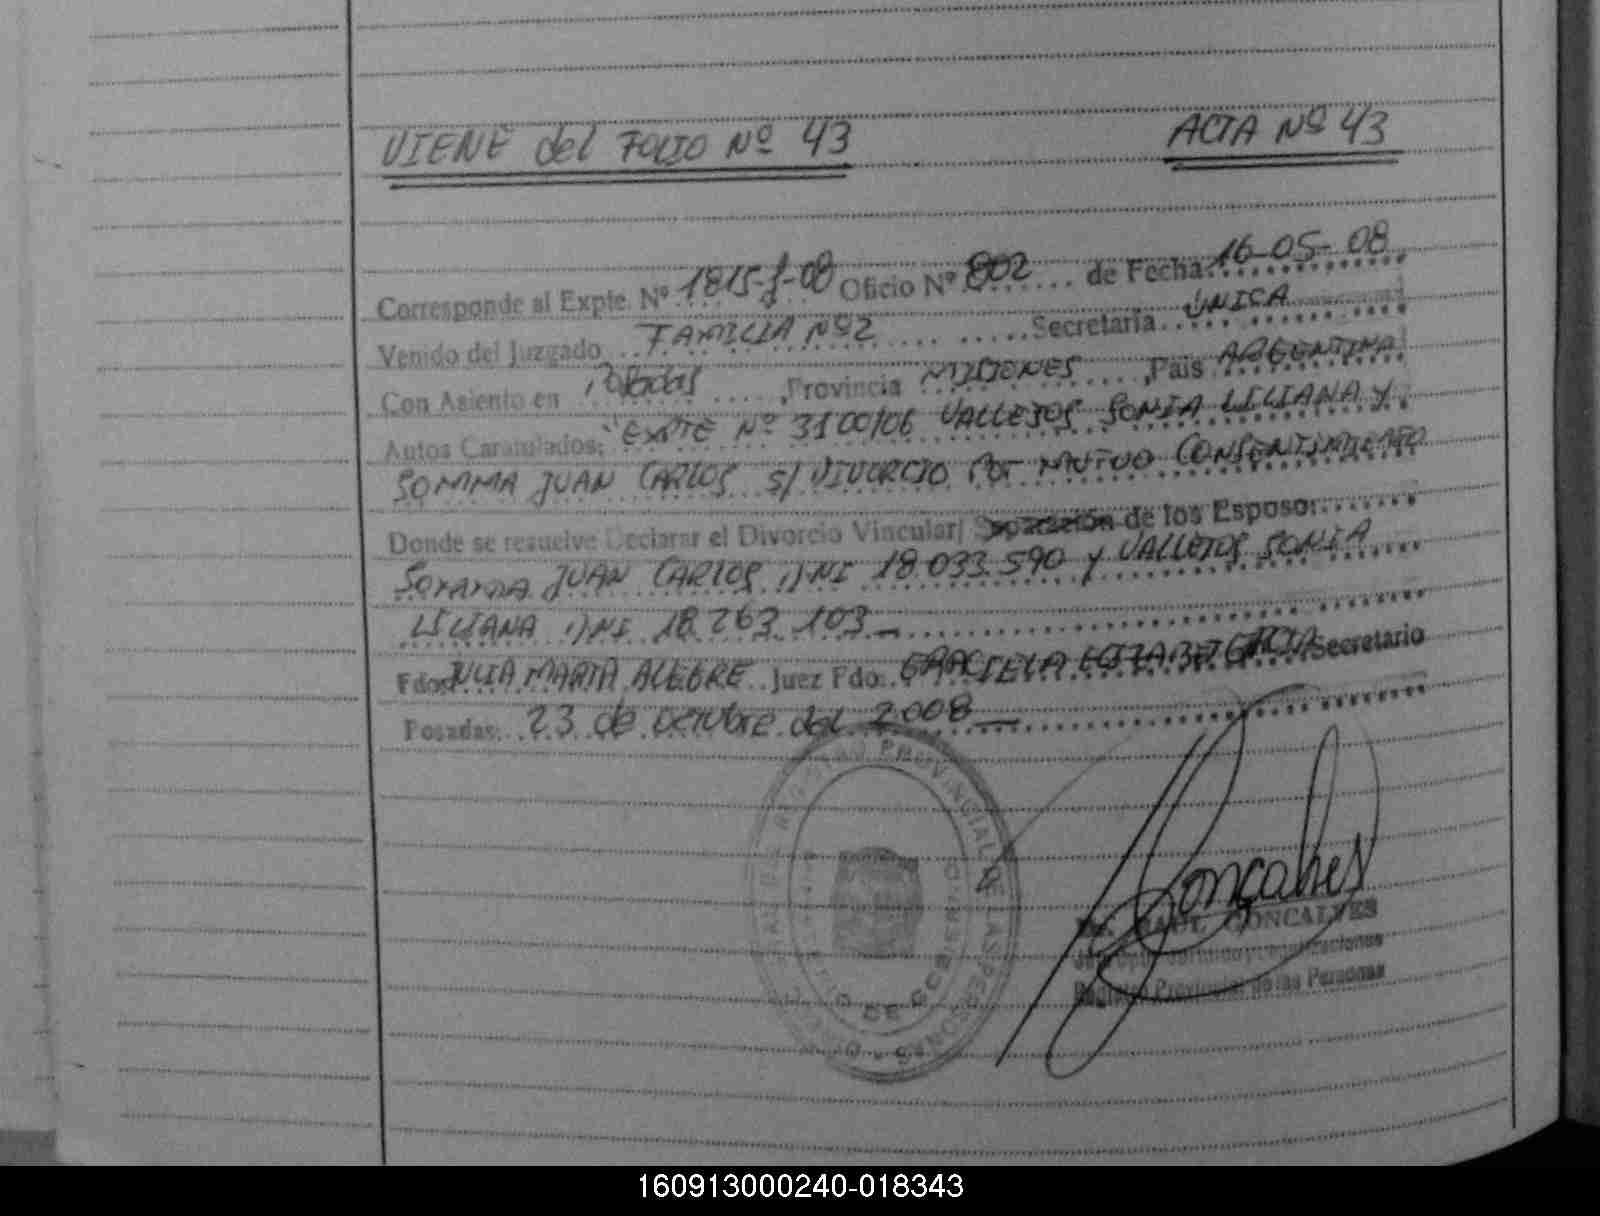 VIENE del FOLIO Nº 43
ACTA Nº 43
Corresponde al Expte. Nº 1815-J-08 Oficio Nº 802 de Fecha 16-05-08
Venido del Juzgado FAMILIA Nº 2 Secretaria UNICA
Con Asiento en Posadas, Provincia MISIONES, Pais ARGENTINA
Autos Caratulados: "EXPTE Nº 3100/06 VALLEJOS SONIA LILIANA Y
SOMMA JUAN CARLOS S/ DIVORCIO POR MUTUO CONSENTIMIENTO
Donde se resuelve Declarar el Divorcio Vincular/ Separación de los Esposo:
SOMMA JUAN CARLOS DNI 18.033.590 y VALLEJOS SONIA
LILIANA DNI 18.263.103
Fdo: JULIA MARTA ALEGRE Juez Fdo: GRACIELA Secretario
Posadas, 23 de octubre del 2008
REGISTRO PROVINCIAL DE LAS PERSONAS
DE GOBIERNO
Goncalves
Dr. RAUL GONCALVES
Registro Provincial de las Personas
160913000240-018343